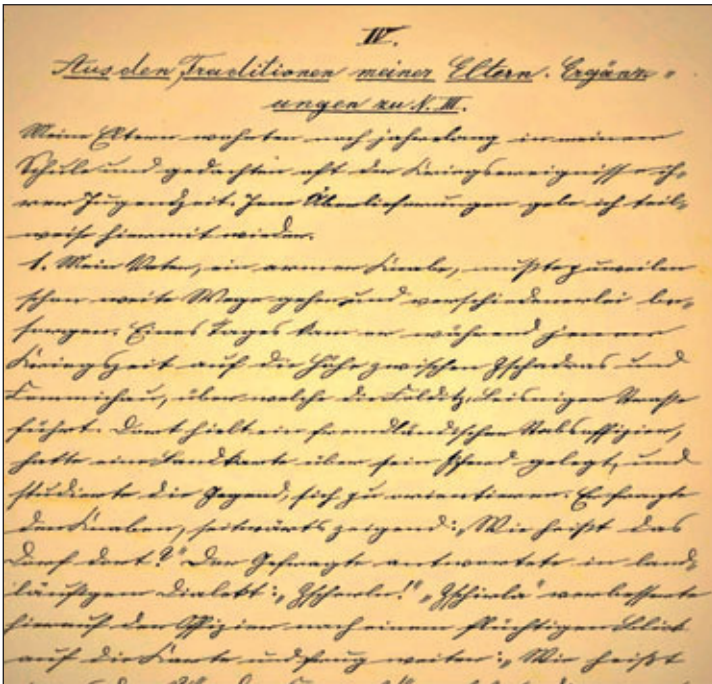 IV.
Aus den Traditionen meiner Eltern. Ergänz-
ungen zu N. III.
Meine Eltern wohnten noch jahrelang in meiner
Schule und gedachten oft der Kriegsereignisse ih-
rer Jugendzeit. Jene Überlieferungen gebe ich teil-
weise hiermit wieder.
1. Mein Vater, ein armer Knabe, mußte zuweilen
schon weite Wege gehen und verschiedenerlei be-
sorgen. Eines Tages kam er während jener
Kriegszeit auf die Höhe zwischen Zschadras und
Commichau, über welche die Colditz-Leisniger Straße
führt. Dort hielt ein fremdländischer Stabsoffizier,
hatte eine Landkarte über sein Pferd gelegt, und
studierte die Gegend, sich zu orientieren. Er fragte
den Knaben, seitwärts zeigend: „Wie heißt das
Dorf dort?" Der Gefragte antwortete in land-
läufigem Dialekt: „Zscherle!" „Zschirla" verbesserte
hierauf der Offizier nach einem flüchtigen Blick
auf die Karte und frug weiter: „Wie heißt